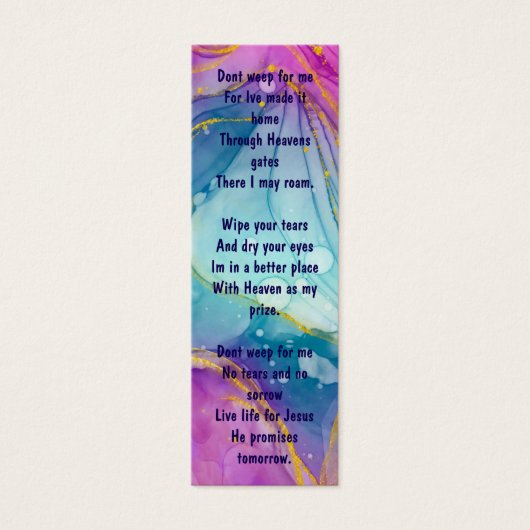 Dont weep for me
For Ive made it
home
Through Heavens
gates
There I may roam.

Wipe your tears
And dry your eyes
Im in a better place
With Heaven as my
prize.

Dont weep for me
No tears and no
sorrow
Live life for Jesus
He promises
tomorrow.